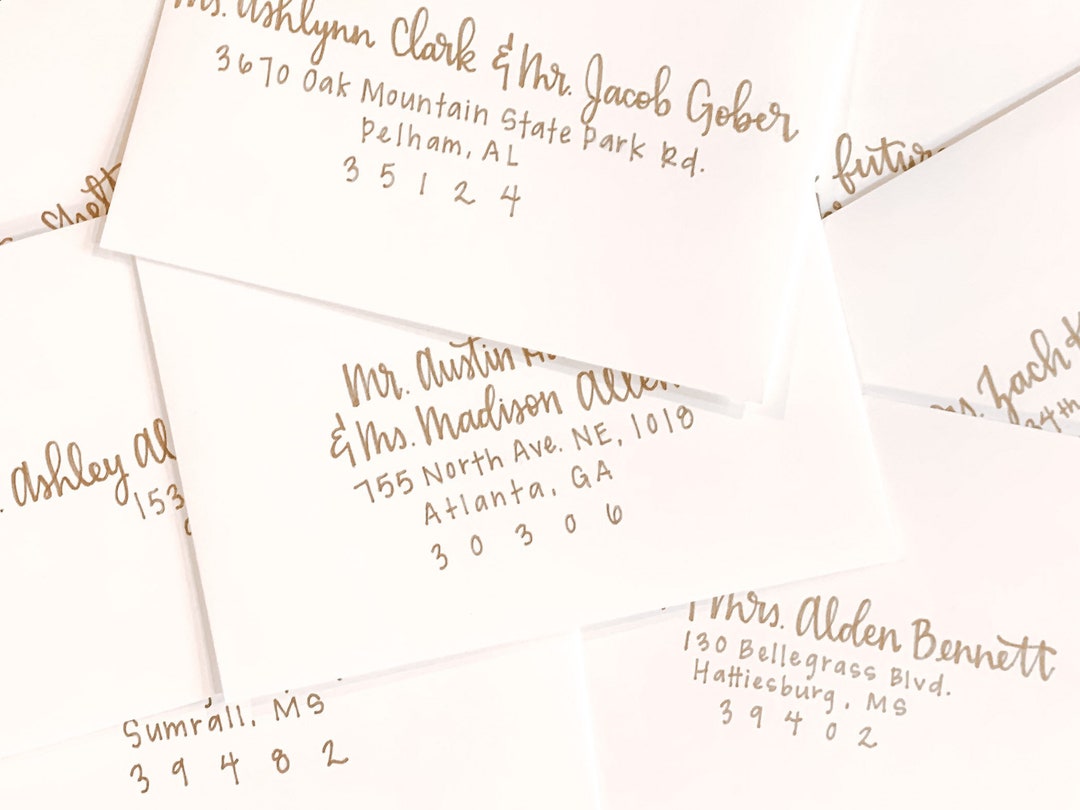 Ms. Ashlynn Clark & Mr. Jacob Gober
3670 Oak Mountain State Park Rd.
Pelham, AL
3 5 1 2 4
Mr. Austin
& Ms. Madison Allen
755 North Ave. NE, 1018
Atlanta, GA
3 0 3 0 6
Ashley
153
Zach
Mrs. Alden Bennett
130 Bellegrass Blvd.
Hattiesburg, MS
3 9 4 0 2
Sumrall, MS
3 9 4 8 2